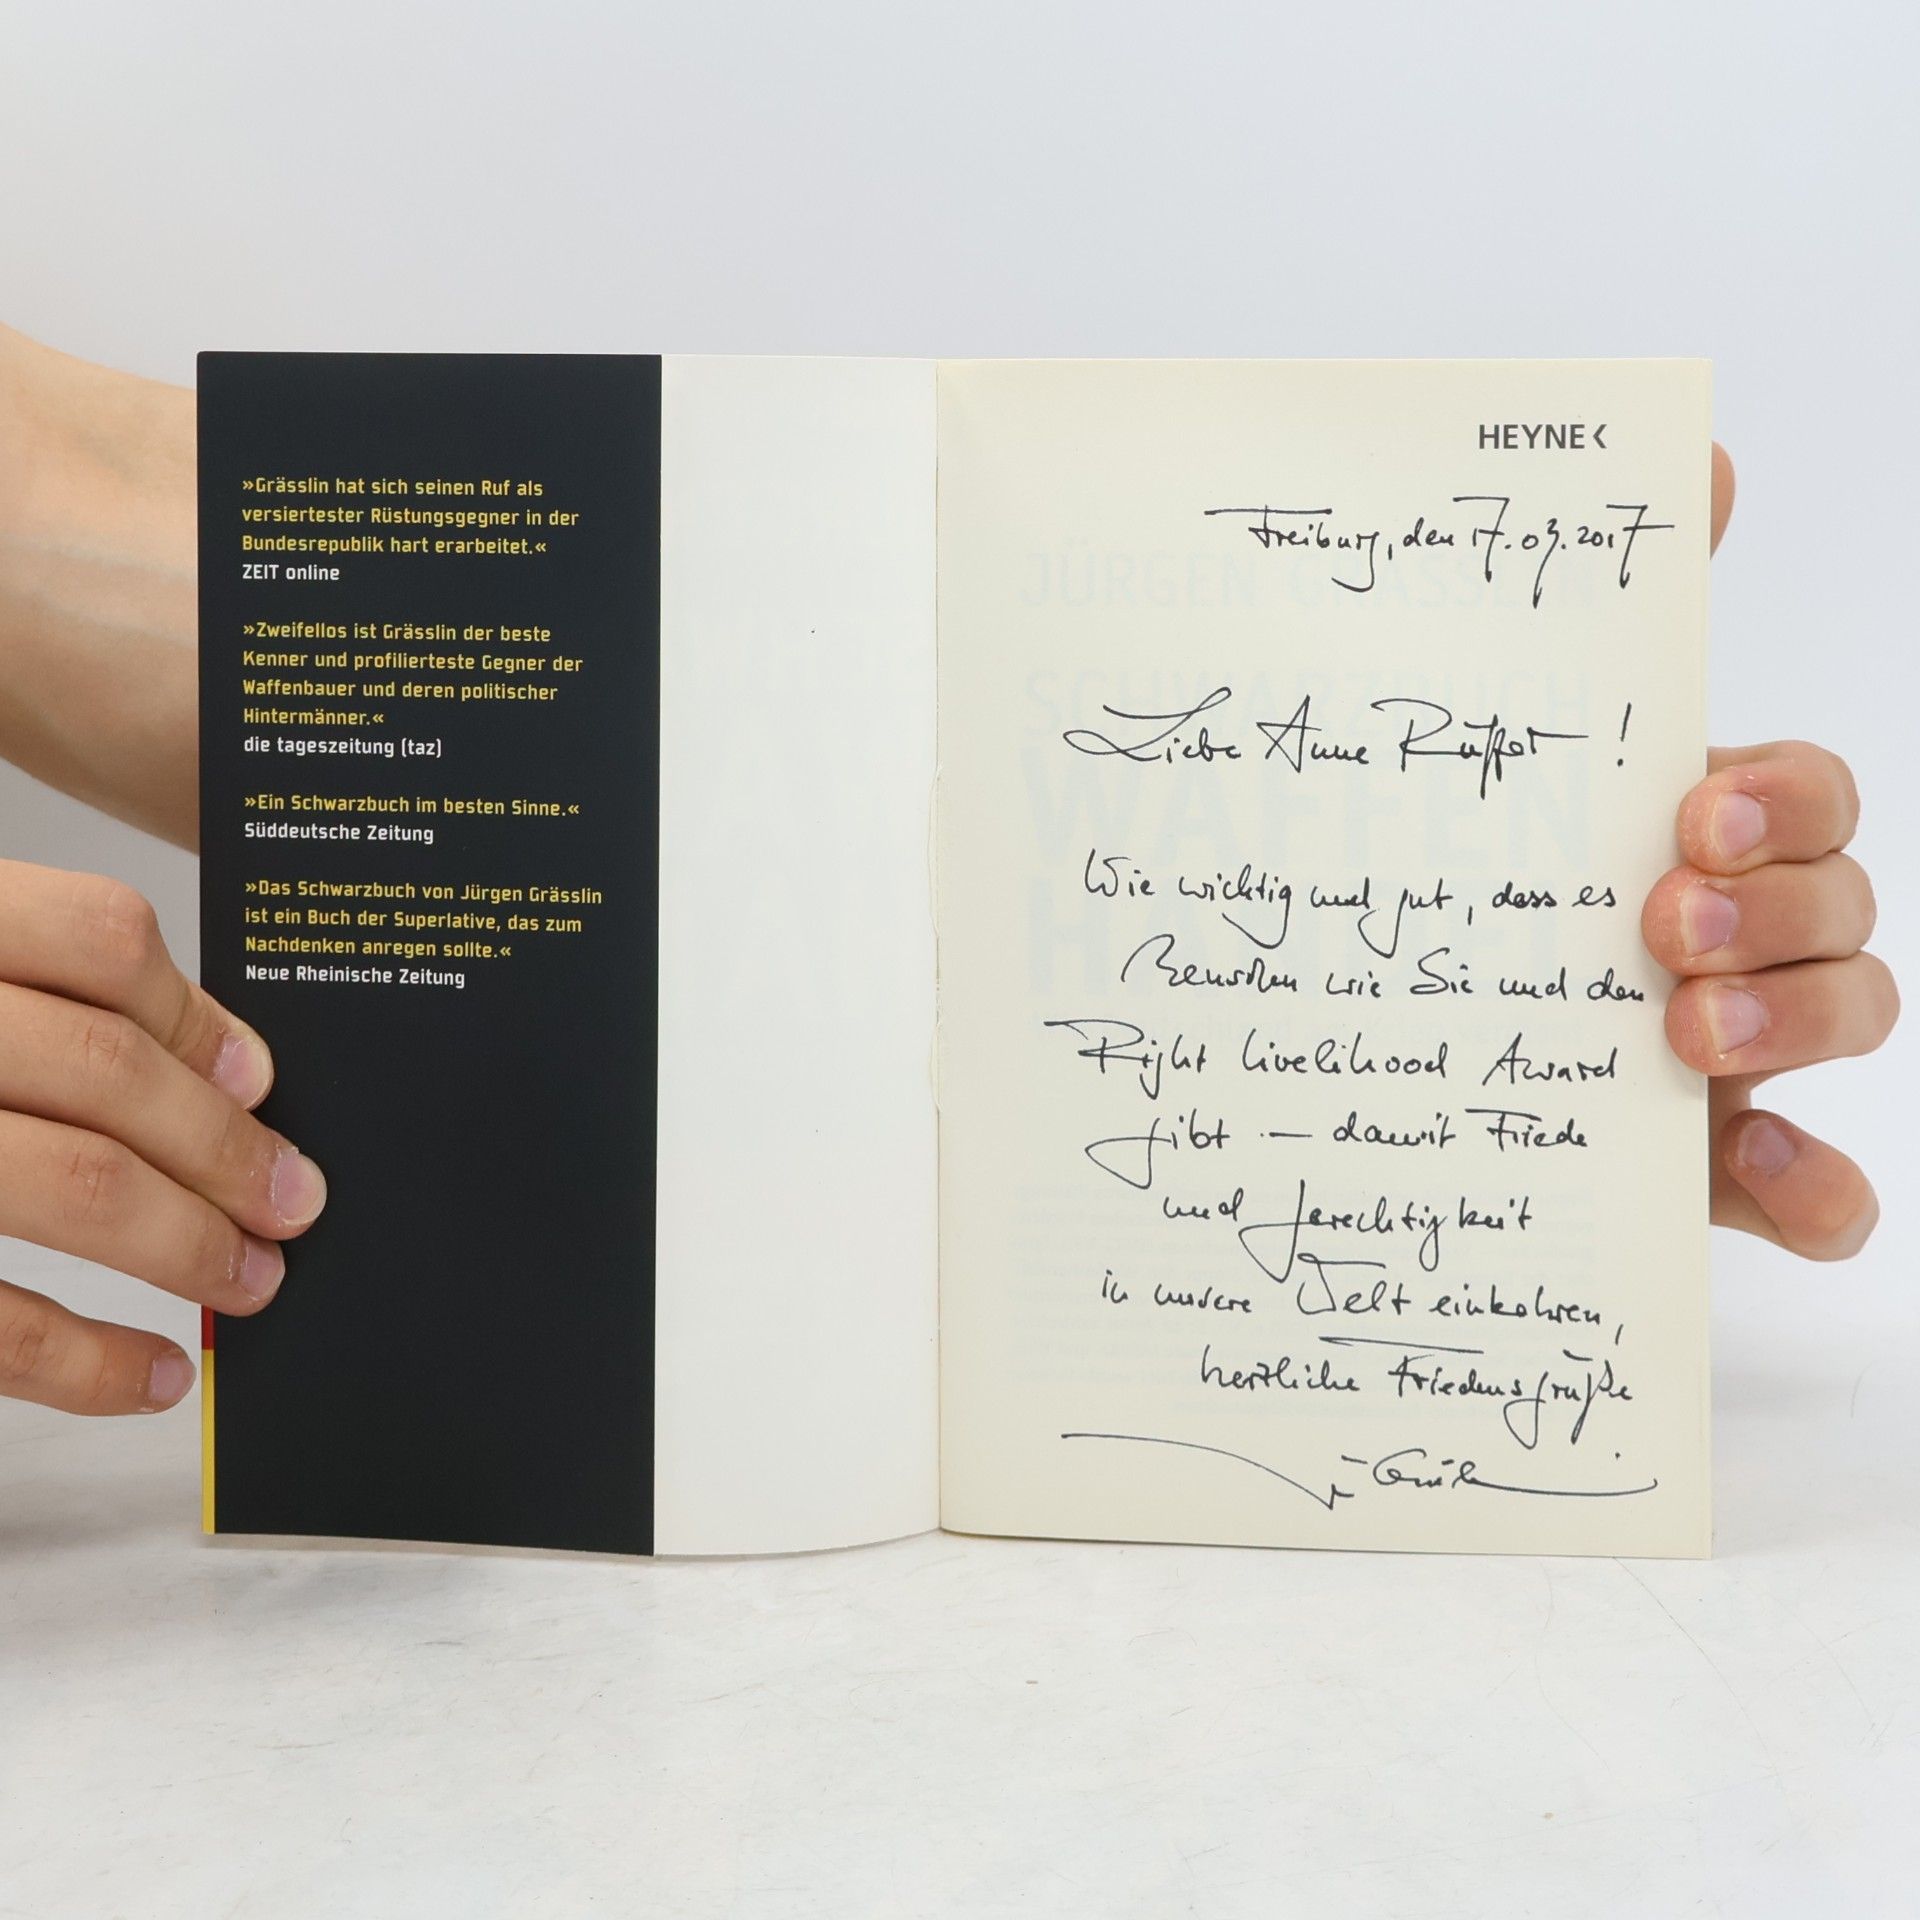 »Grässlin hat sich seinen Ruf als
versiertester Rüstungsgegner in der
Bundesrepublik hart erarbeitet.«
ZEIT online
»Zweifellos ist Grässlin der beste
Kenner und profilierteste Gegner der
Waffenbauer und deren politischer
Hintermänner.«
die tageszeitung (taz)
»Ein Schwarzbuch im besten Sinne.«
Süddeutsche Zeitung
»Das Schwarzbuch von Jürgen Grässlin
ist ein Buch der Superlative, das zum
Nachdenken anregen sollte.«
Neue Rheinische Zeitung
HEYNE<
Freiburg, den 17.03.2017
JÜRGEN GRÄSSLIN
SCHWARZBUCH
WAFFEN
HANDEL
Liebe Anne
!
Wie wichtig und gut, dass es
Menschen wie Sie und den
Right Livelihood Award
gibt – damit Friede
und Gerechtigkeit
in unsere Welt einkehren,
herzliche Friedensgrüße